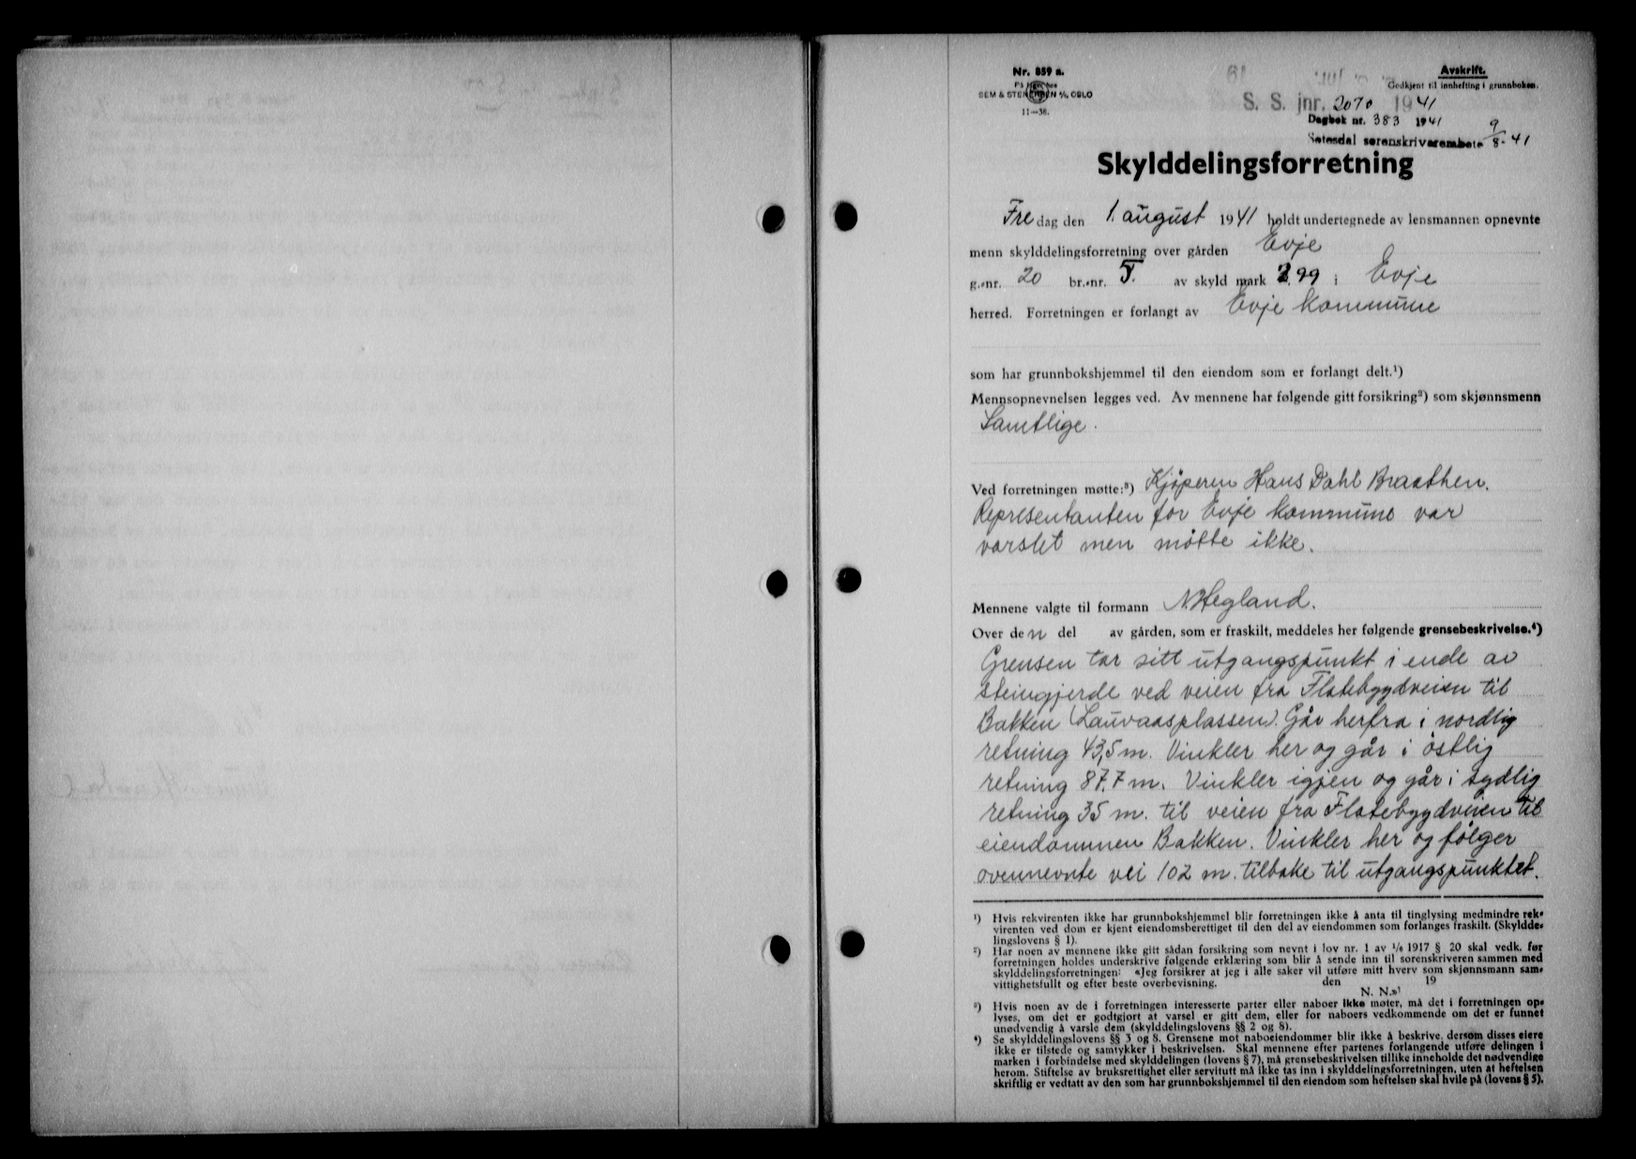 Nr. 859 a.
På lager hos
SEM & STENERSEN A/S, OSLO
11—38.
Avskrift.
Godkjent til innhefting i grunnboken.
S. S. jnr. 2070 1941
Dagbok nr. 383 1941
Setesdal sorenskriverembete 9/8-41
Skylddelingsforretning
Fredag den 1. august 1941 holdt undertegnede av lensmannen opnevnte
menn skylddelingsforretning over gården Evje
g.-nr. 20 br.-nr. 5. av skyld mark 2,99 i Evje
herred. Forretningen er forlangt av Evje kommune
som har grunnbokshjemmel til den eiendom som er forlangt delt.¹)
Mennsopnevnelsen legges ved. Av mennene har følgende gitt forsikring²) som skjønnsmenn
Samtlige.
Ved forretningen møtte:³) Kjøperen Hans Dahl Braathen.
Representanten for Evje kommune var
varslet men møtte ikke.
Mennene valgte til formann N Hegland.
Over den del av gården, som er fraskilt, meddeles her følgende grensebeskrivelse.⁴)
Grensen tar sitt utgangspunkt i ende av
steingjerde ved veien fra Flatebygdveien til
Bakken (Lauvaasplassen). Går herfra i nordlig
retning 43,5 m. Vinkler her og går i østlig
retning 87,7 m. Vinkler igjen og går i sydlig
retning 35 m. til veien fra Flatebygdveien til
eiendommen Bakken. Vinkler her og følger
ovennevnte vei 102 m. tilbake til utgangspunktet.
¹) Hvis rekvirenten ikke har grunnbokshjemmel blir forretningen ikke å anta til tinglysing medmindre rek-
virenten ved dom er kjent eiendomsberettiget til den del av eiendommen som forlanges fraskilt. (Skyldde-
lingslovens § 1).
²) Har noen av mennene ikke gitt sådan forsikring som nevnt i lov nr. 1 av 1/6 1917 § 20 skal vedk. før
forretningen holdes underskrive følgende erklæring som blir å sende inn til sorenskriveren sammen med
skylddelingsforretningen: «Jeg forsikrer at jeg i alle saker vil utføre mitt hverv som skjønnsmann sam-
vittighetsfullt og efter beste overbevisning. den 19
N. N.»
³) Hvis noen av de i forretningen interesserte parter eller naboer ikke møter, må det i forretningen op-
lyses, om det er godtgjort at varsel er gitt dem, eller for naboers vedkommende om det er funnet
unødvendig å varsle dem (skylddelingslovens §§ 2 og 8).
⁴) Se skylddelingslovens §§ 3 og 8. Grensene mot naboeiendommer blir ikke å beskrive, dersom disses eiere
ikke er tilstede og samtykker i beskrivelsen. Skal mennene efter partenes forlangende utføre delingen i
marken i forbindelse med skylddelingen (lovens § 7), må grensebeskrivelsen tillike inneholde det nødvendige
herom. Stiftelse av bruksrettighet eller servitutt må ikke tas inn i skylddelingsforretningen, uten at heftelsen
skriftlig er vedtatt av den som har grunnbokshjemmel til den eiendom som heftelsen skal hvile på (lovens § 5).